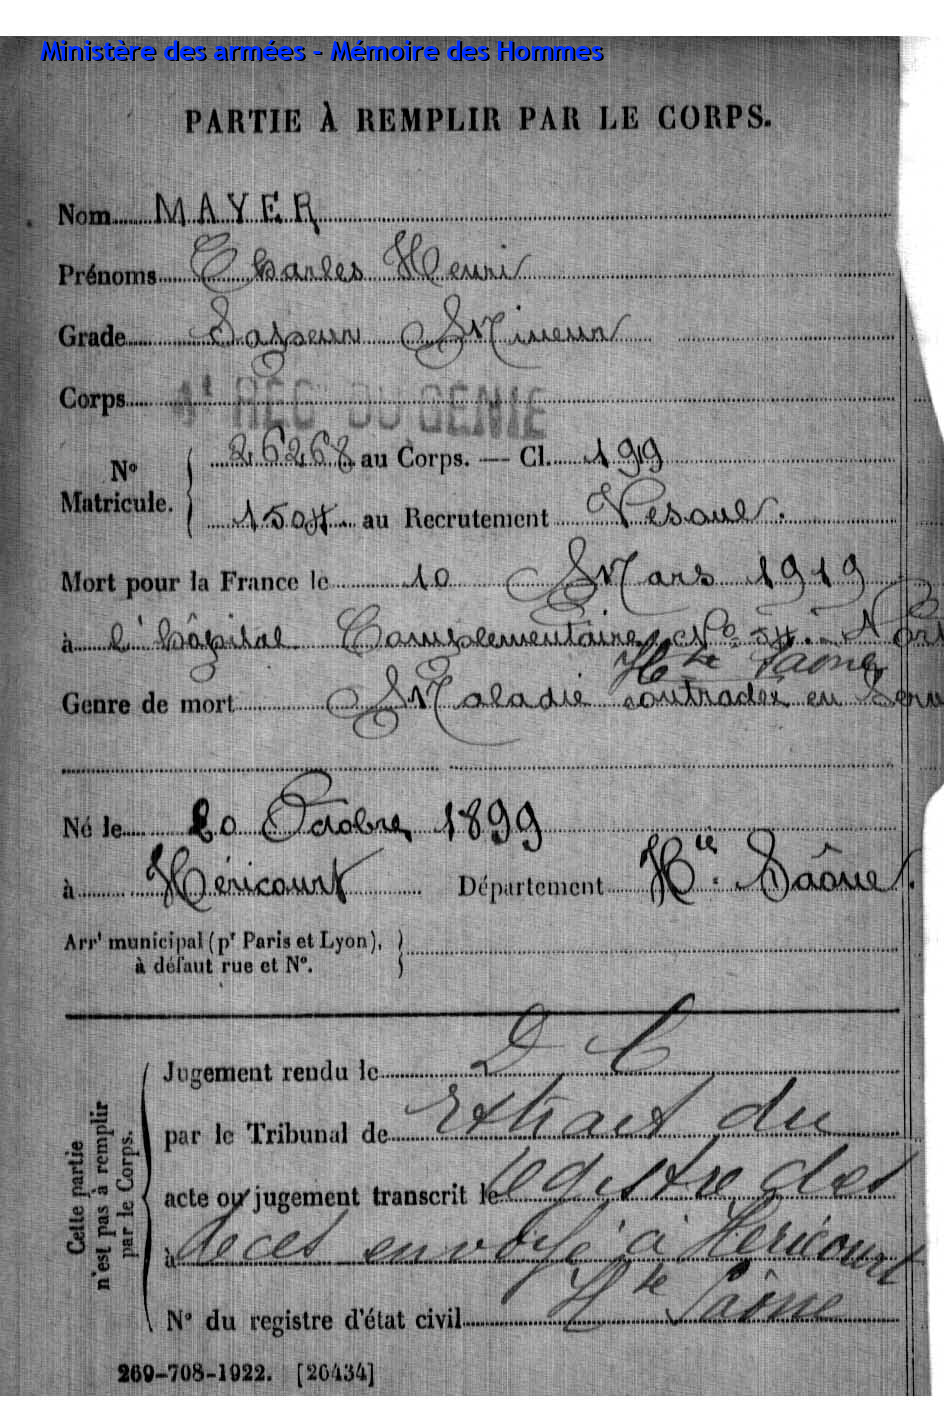 Ministère des armées - Mémoire des Hommes
PARTIE À REMPLIR PAR LE CORPS.
Nom MAYER
Prénoms Charles Henri
Grade Sapeur Mineur
Corps 1 RÉG DU GÉNIE
Nº Matricule. 26268 au Corps. — Cl. 1919
1504 au Recrutement Vesoul.
Mort pour la France le 10 Mars 1919
à l'hôpital Complémentaire Nº 54. Port
Hte Saône
Genre de mort Maladie contractée en Serv
Né le 20 Octobre 1899
à Héricourt Département Hte. Saône.
Arrt municipal (pr Paris et Lyon),
à défaut rue et Nº.
Cette partie
n'est pas à remplir
par le Corps.
Jugement rendu le D C
par le Tribunal de Extrait du
acte ou jugement transcrit le registre des
à décès envoyé à Héricourt
Hte Saône
Nº du registre d'état civil
269-708-1922. [26434]